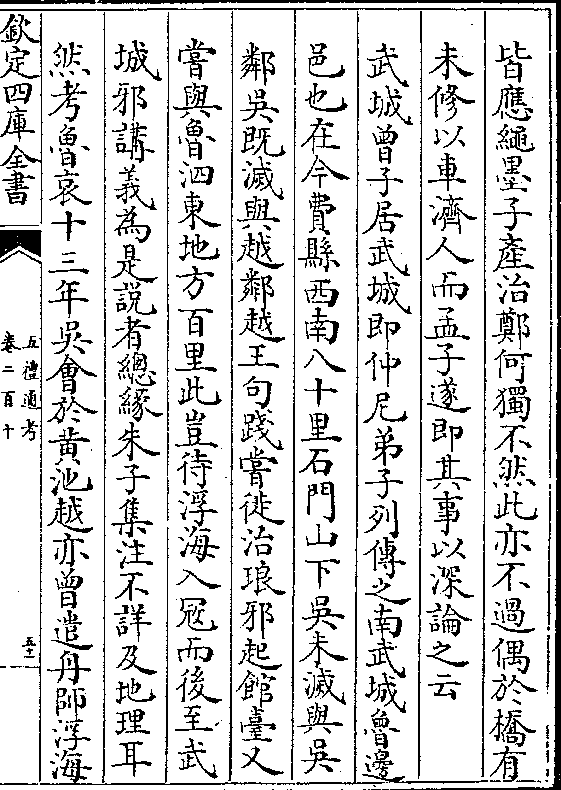 皆應繩墨子產治鄭何獨不然此亦不過偶於橋有
未修以車濟人而孟子遂即其事以深論之云
武城曾子居武城即仲尼弟子列傳之南武城魯邊
邑也在今費縣西南八十里石門山下吳未滅與吳
鄰吳既滅與越鄰越王句踐嘗徙治琅邪起館臺又
嘗與魯泗東地方百里此豈待浮海入冦而後至武
城邪講義為是説者總緣朱子集注不詳及地理耳
然考魯哀十三年吳會於黃池越亦曾遣舟師浮海
欽定四庫全書
五禮通考
卷二百十